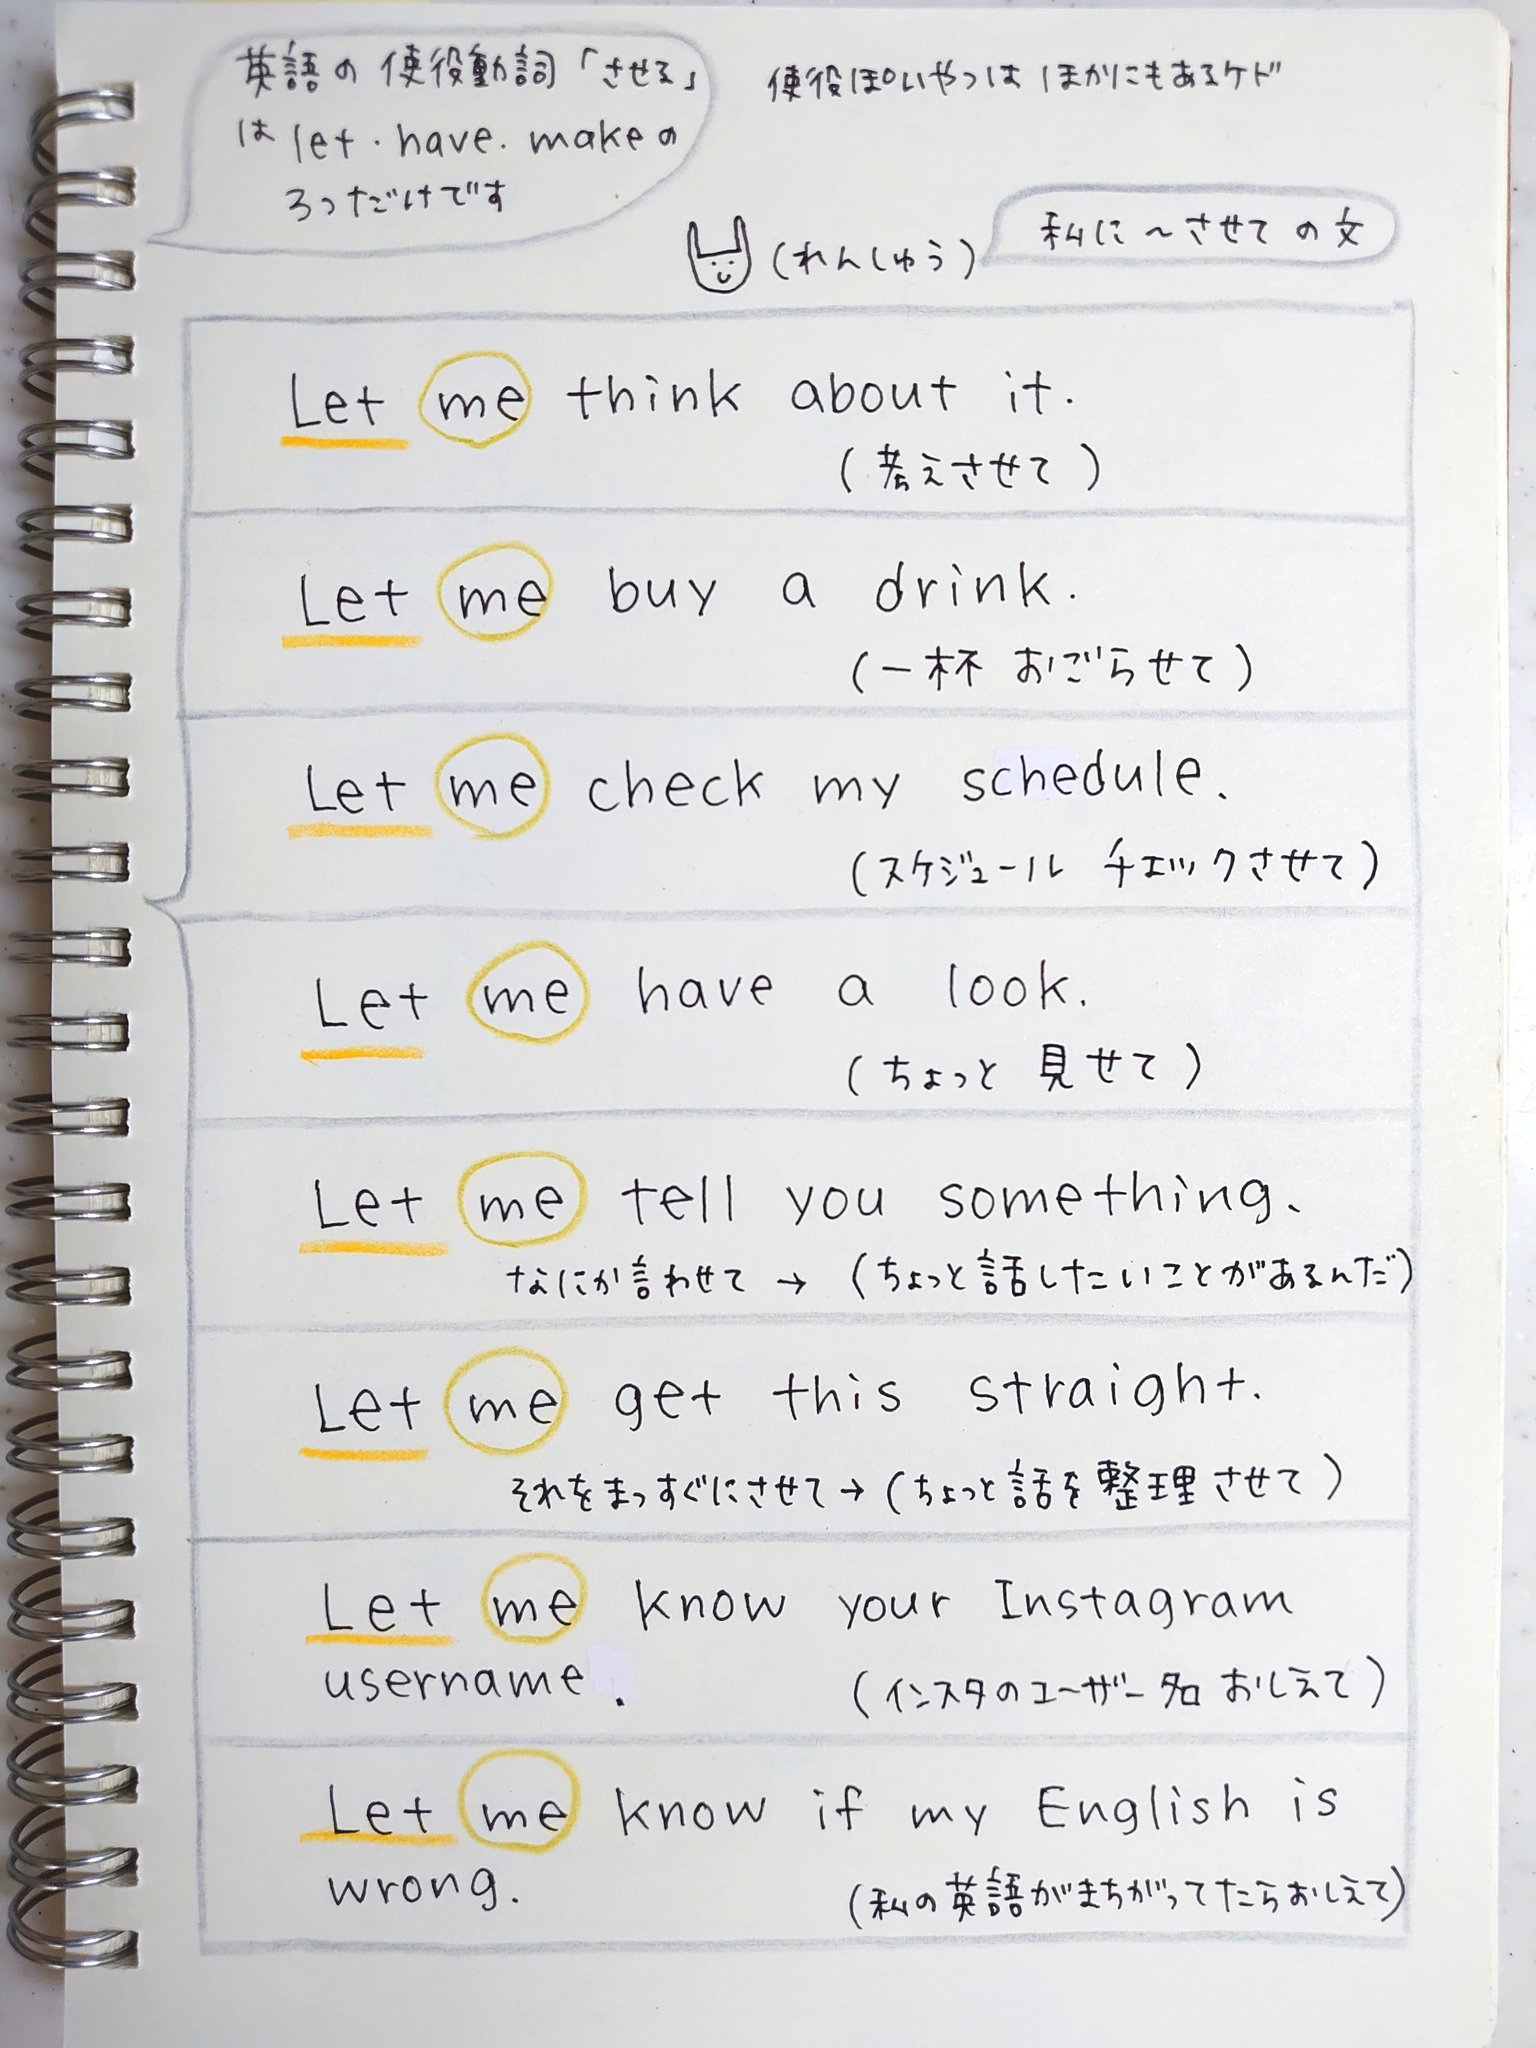 英語の使役動詞「させる」
は let・have・makeの
3つだけです
使役ぽいやつは ほかにもあるケド
(れんしゅう)
私に〜させて の文
Let me think about it.
(考えさせて)
Let me buy a drink.
(一杯 おごらせて)
Let me check my schedule.
(スケジュール チェックさせて)
Let me have a look.
(ちょっと 見せて)
Let me tell you something.
なにか言わせて → (ちょっと話したいことがあるんだ)
Let me get this straight.
それをまっすぐにさせて → (ちょっと話を整理させて)
Let me know your Instagram
username.
(インスタのユーザー名 おしえて)
Let me know if my English is
wrong.
(私の英語がまちがってたらおしえて)